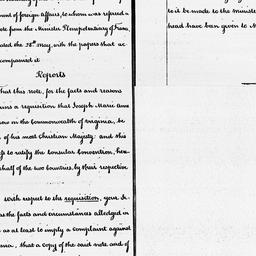 ment of foreign Affairs, to whom was referred a
note from the Minister Plenipotentiary of France,
dated the 18th May, with the papers that ac
companied it
Reports
that this note, for the facts and reasons
ins a requisition that Joseph Marie Anne
now in the Commonwealth of Virginia, be
of his most Christian Majesty: and this
to ratify the Consular Convention, here
behalf of the two Countries, by their respective
With respect to the requisition, your Se-
as the facts and circumstances alledged in
as at least to imply a complaint against
nia, that a copy of the said note and of
to it be made to the Minister
head have been given to M